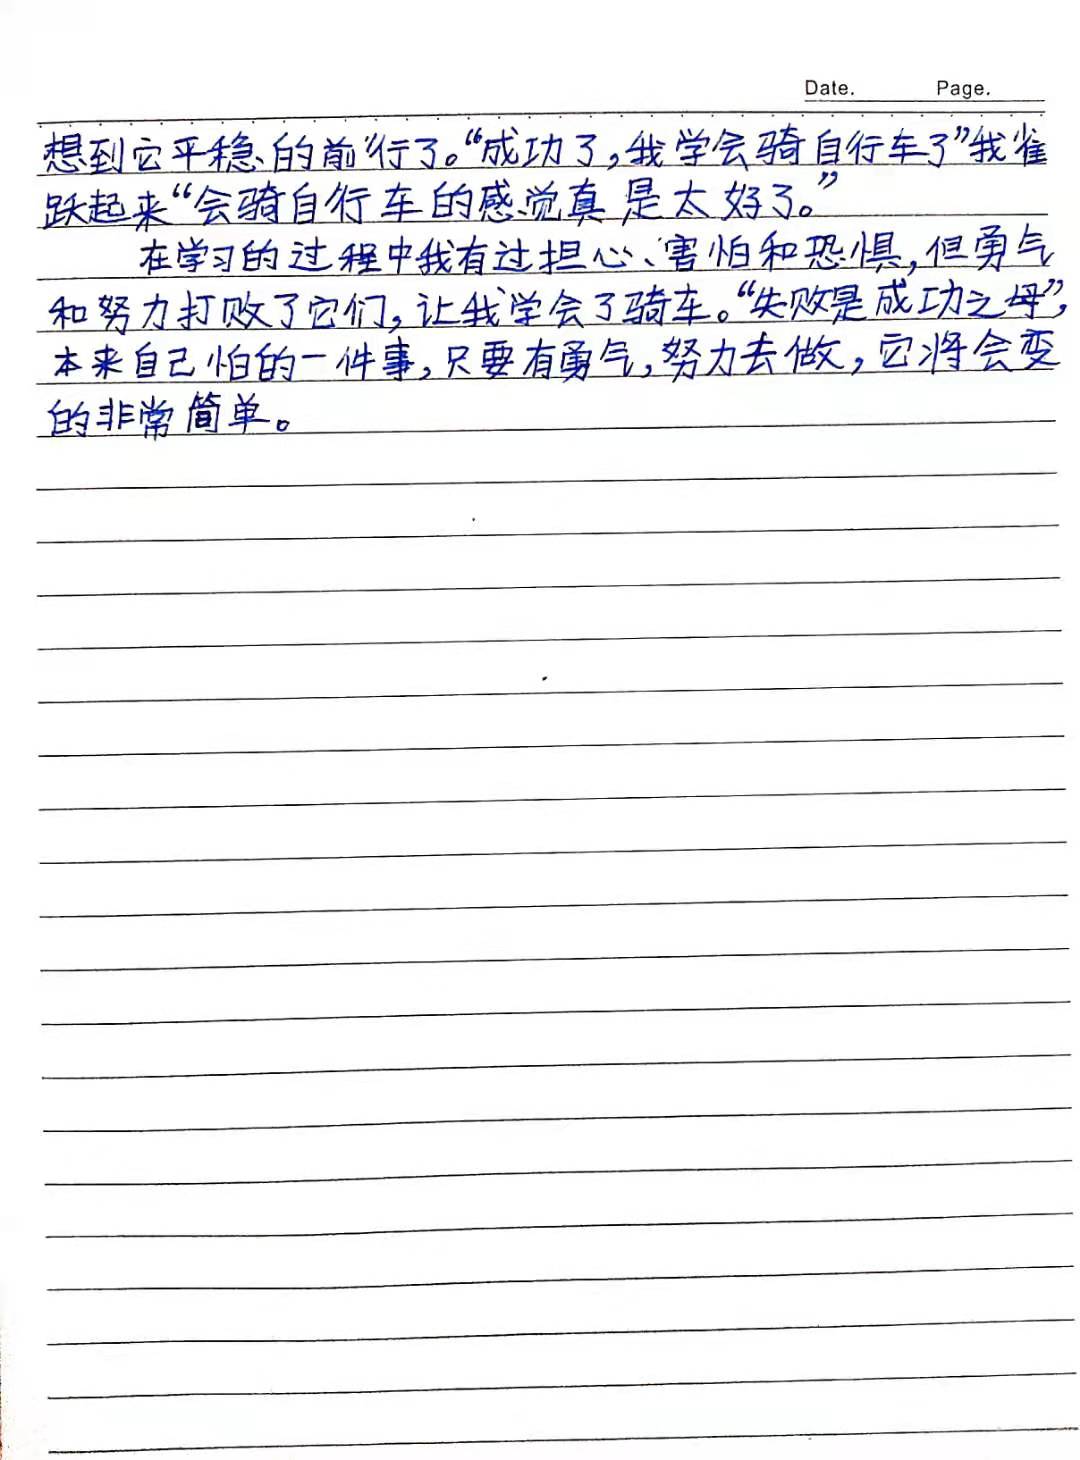 Date. Page.
想到它平稳的前行了。“成功了,我学会骑自行车了”我雀
跃起来“会骑自行车的感觉真是太好了。”
在学习的过程中我有过担心、害怕和恐惧,但勇气
和努力打败了它们,让我学会了骑车。“失败是成功之母”,
本来自己怕的一件事,只要有勇气,努力去做,它将会变
的非常简单。